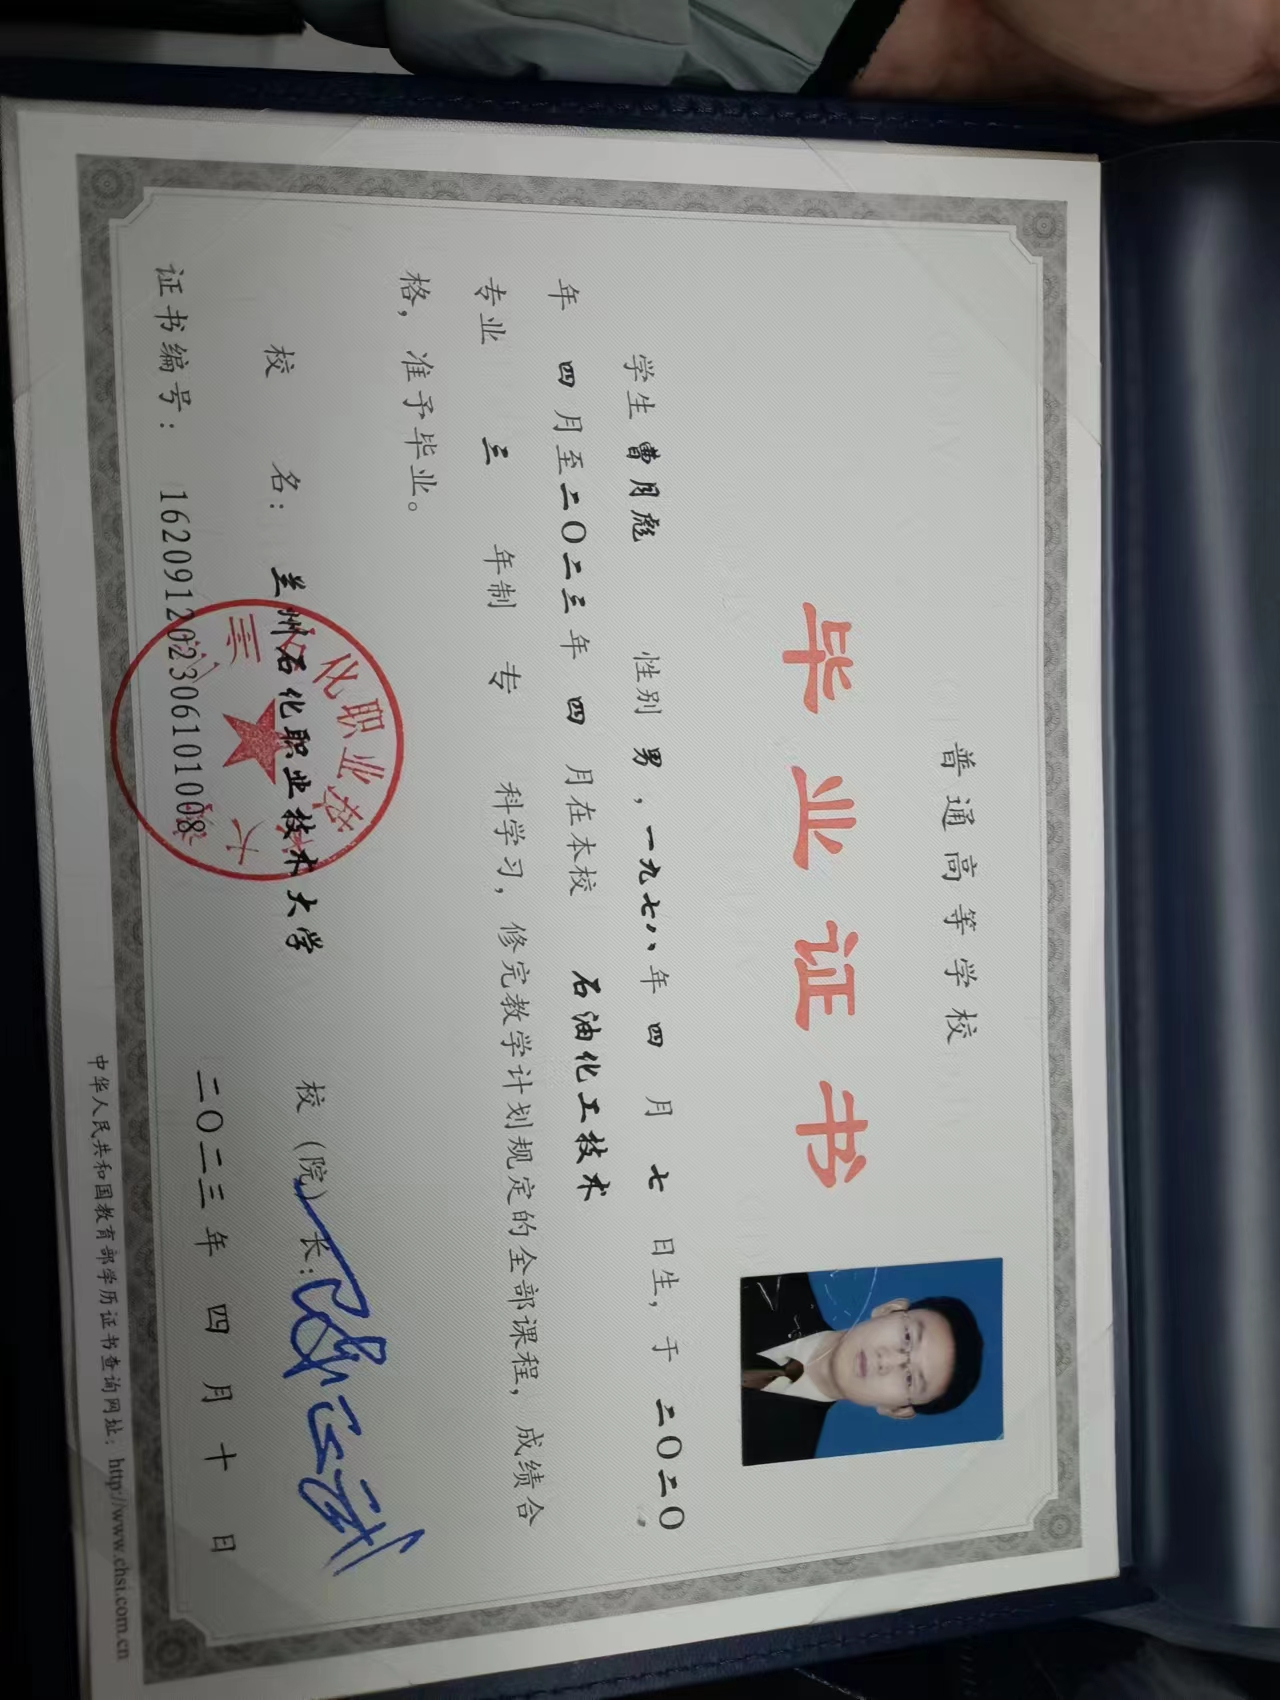 普通高等学校
毕业证书
学生 曹月彪 性别 男，一九七八年 四 月 七 日生，于 二〇二〇
年 四 月至二〇二三年 四 月在本校 石油化工技术
专业 三 年制 专 科学习，修完教学计划规定的全部课程，成绩合
格，准予毕业。
校 名：兰州石化职业技术大学 校（院）长：
证书编号：162091202306101008 二〇二三年 四 月 十 日
中华人民共和国教育部学历证书查询网址：http://www.chsi.com.cn